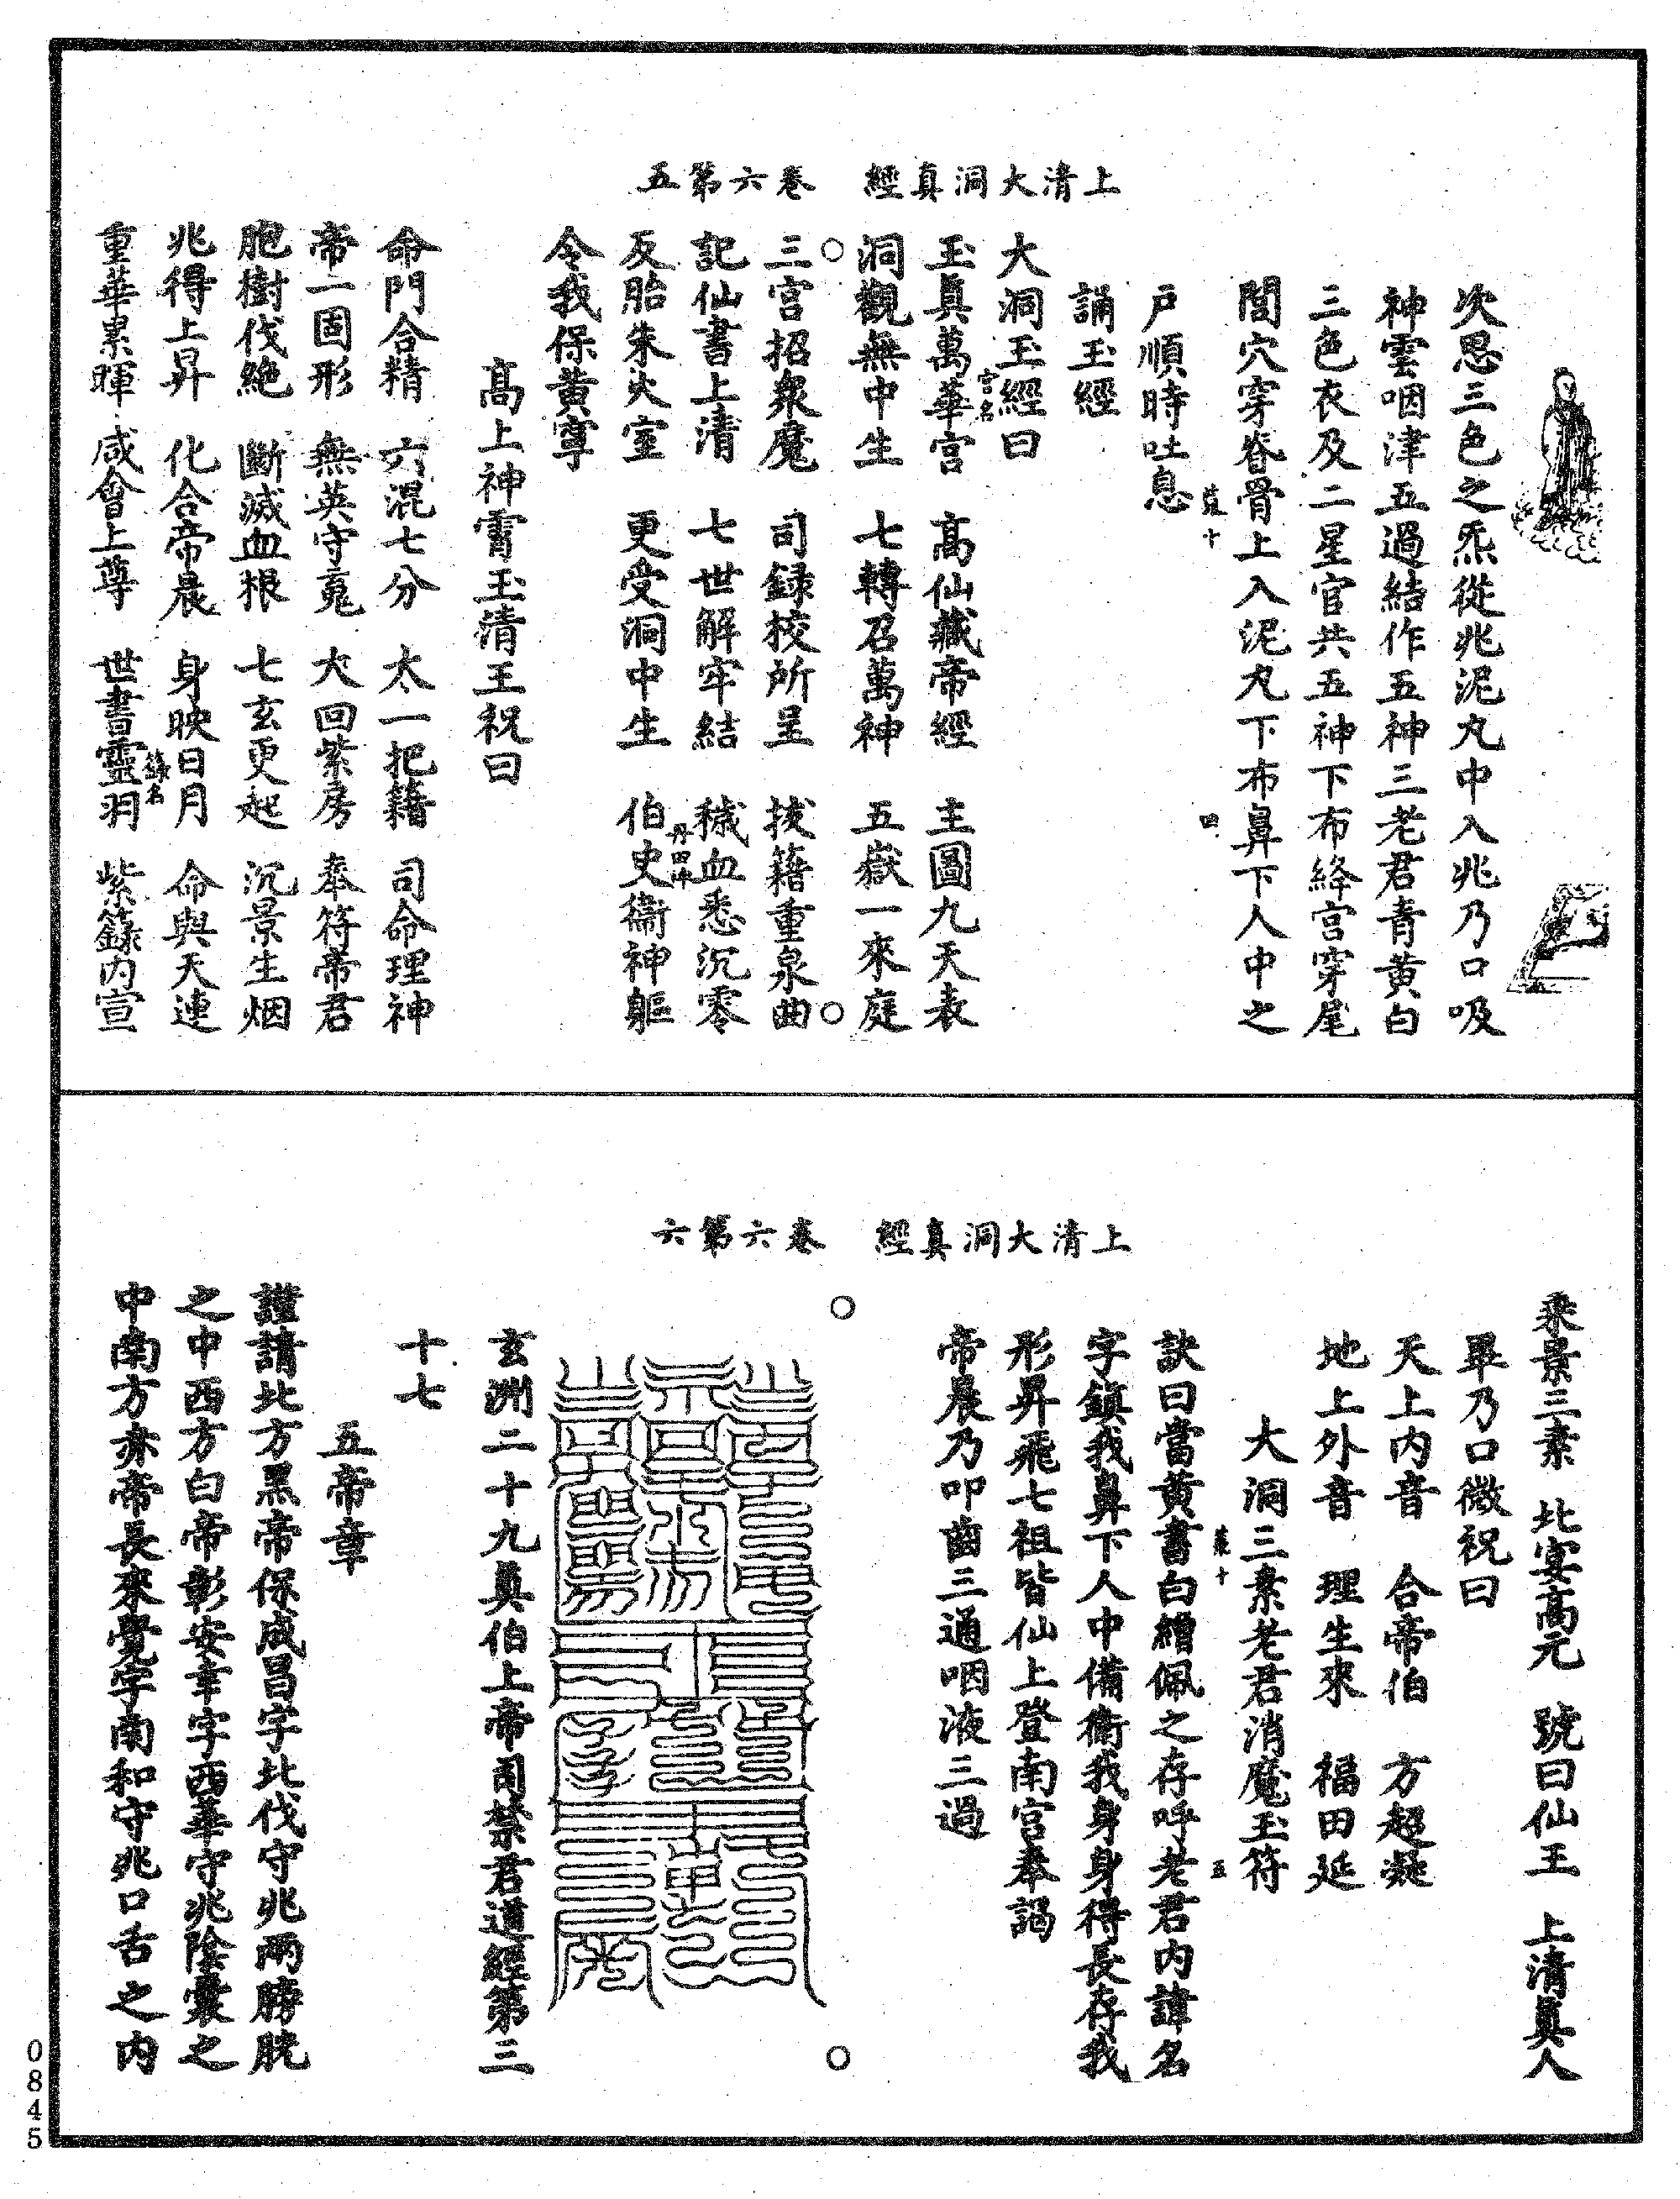 上清大洞真經　卷六第五
次思三色之炁從兆泥丸中入兆乃口吸
神雲咽津五過結作五神三老君青黃白
三色衣及二星官共五神下布絳宮穿尾
閭穴穿脊骨上入泥丸下布鼻下人中之
戶順時吐息
誦玉經
大洞玉經曰
玉眞萬華宮　高仙藏帝經　主圖九天表
宮名
洞觀無中生　七轉召萬神　五嶽一來庭
三宮招衆魔　司録校所呈　拔籍重泉曲
記仙書上清　七世解牢結　穢血悉沉零
反胎朱火室　更受洞中生　伯史衞神軀
丹田中
令我保黃寧
高上神霄玉清王祝曰
命門合精　六混七分　太一把籍　司命理神
帝一固形　無英守寬　大回紫房　奉符帝君
胞樹伐絶　斷滅血根　七玄更起　沉景生烟
兆得上昇　化合帝晨　身映日月　命與天連
重華累暉　咸會上尊　世書靈羽　紫籙內宣
籙名
上清大洞真經　卷六第六
乘景三素　北宴高元　號曰仙王　上清眞人
畢乃口微祝曰
天上內音　合帝伯　方超凝
地上外音　理生來　福田延
大洞三素老君消魔玉符
訣曰當黃書白繒佩之存呼老君內諱名
字鎮我鼻下人中備衛我身身得長存我
形昇飛七祖皆仙上登南宮奉謁
帝晨乃叩齒三通咽液三過
玄洲二十九眞伯上帝司禁君道經第三
十七
五帝章
謹請北方黑帝保成昌字北伐守兆兩膀胱
之中西方白帝彰安幸字西華守兆陰囊之
中南方赤帝長來覺字南和守兆口舌之內
0845